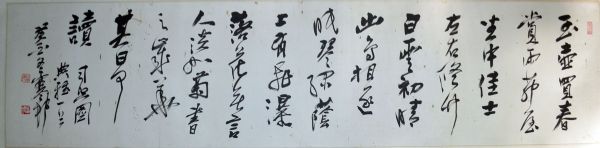 玉壶買春
賞雨茆屋
坐中佳士
左右修竹
白雲初晴
幽鳥相逐
眠琴綠蔭
上有飛瀑
落花無言
人淡如菊書
之歲華
其曰可
讀 司空圖
典雅一首